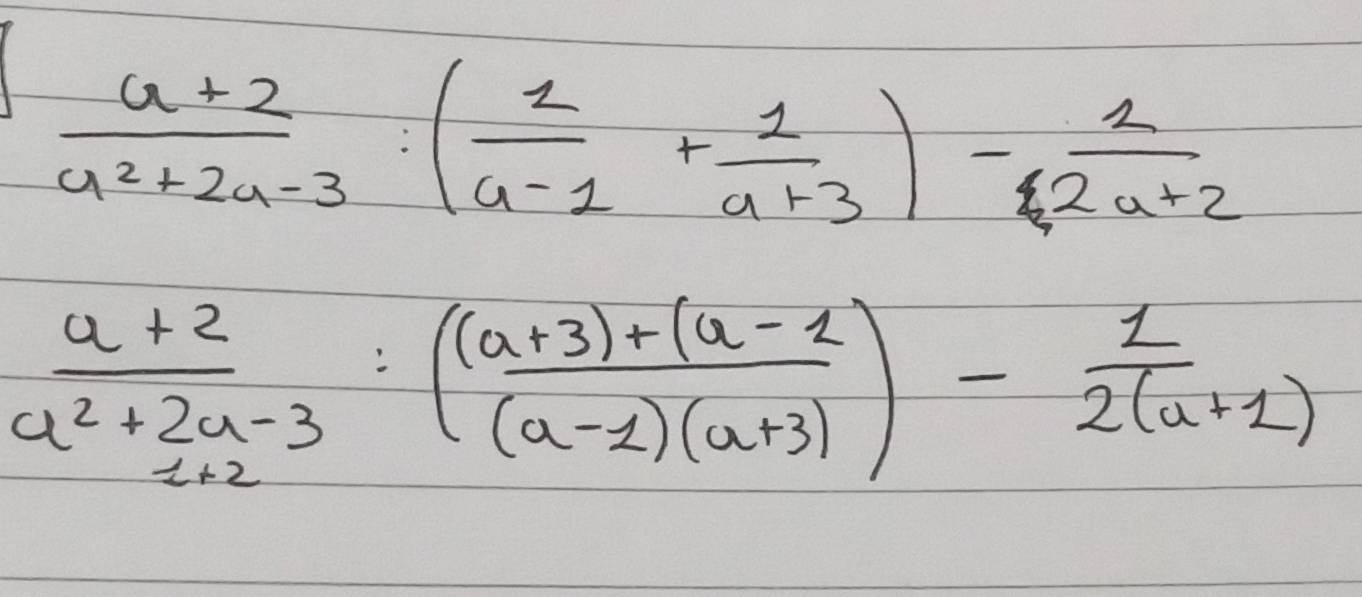 ] (a+2)/(a²+2a-3) : (1/(a-1) + 1/(a+3)) - 1/(2a+2)
(a+2)/(a²+2a-3) : (((a+3)+(a-1)/((a-1)(a+3))) - 1/(2(a+1))
1+2